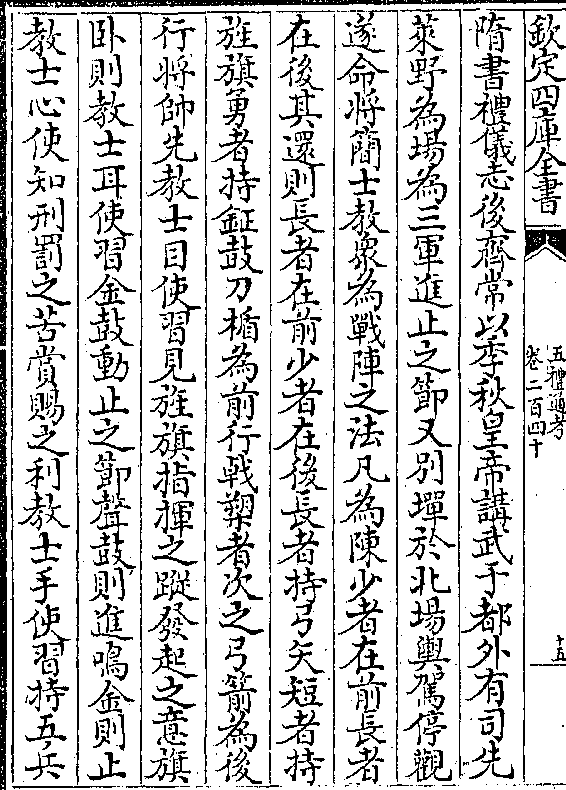 欽定四庫全書
五禮通考
卷二百四十
十五
隋書禮儀志後齊常以季秋皇帝講武于都外有司先
萊野為場為三軍進止之節又別墠於北場輿駕停觀
遂命將簡士教衆為戰陣之法凡為陳少者在前長者
在後其還則長者在前少者在後長者持弓矢短者持
旌旗勇者持鉦鼓刀楯為前行戟槊者次之弓箭為後
行將帥先教士目使習見旌旗指揮之蹤發起之意旗
卧則教士耳使習金鼓動止之節聲鼓則進鳴金則止
教士心使知刑罰之苦賞賜之利教士手使習持五兵